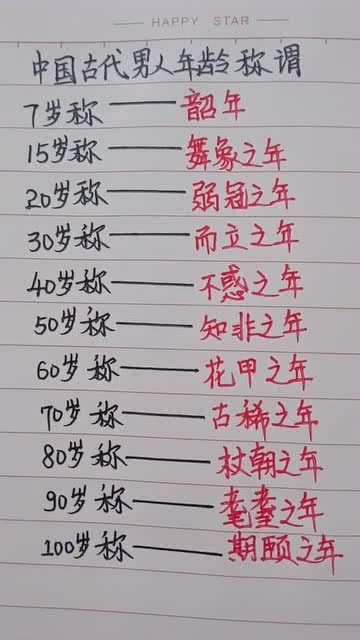 HAPPY STAR
中国古代男人年龄称谓
7岁称——韶年
15岁称——舞象之年
20岁称——弱冠之年
30岁称——而立之年
40岁称——不惑之年
50岁称——知非之年
60岁称——花甲之年
70岁称——古稀之年
80岁称——杖朝之年
90岁称——耄耋之年
100岁称——期颐之年